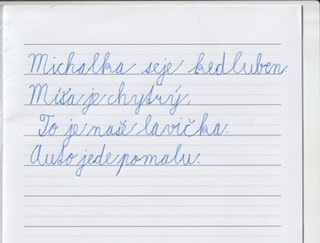 Michalka seje kedluben.
Míša je chytrý.
To je naše lavička.
Auto jede pomalu.